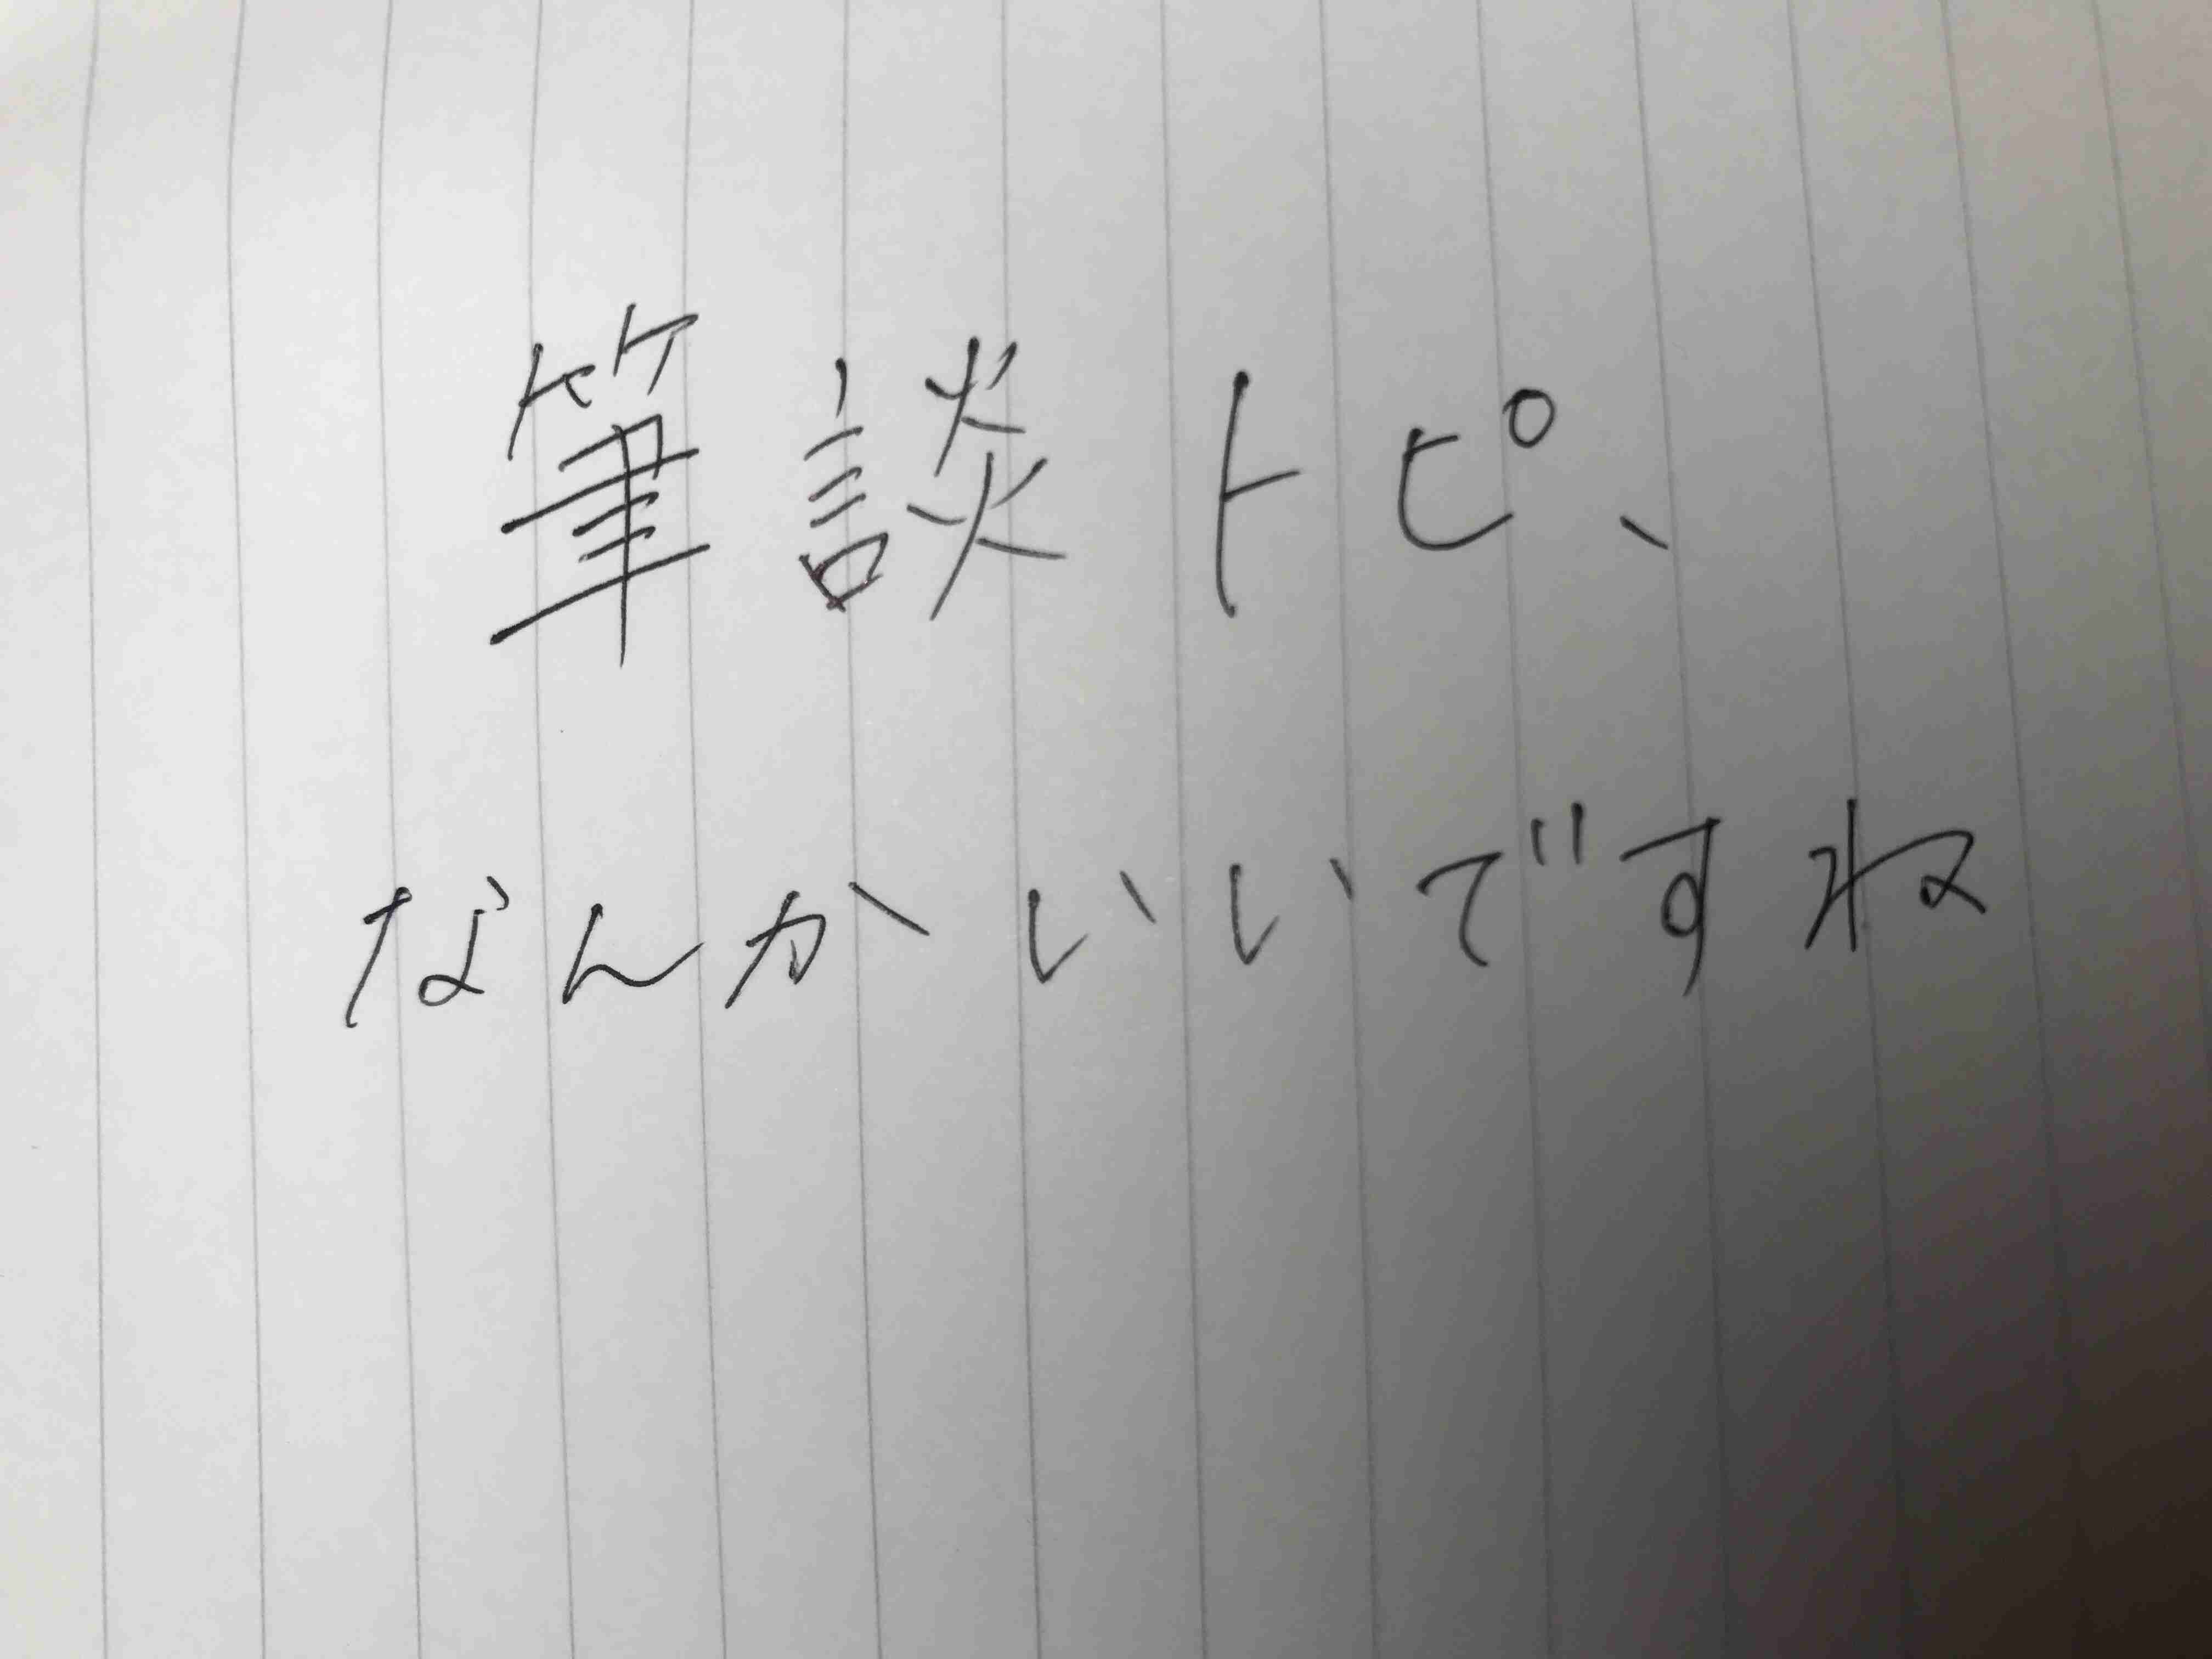 筆談トピ、
なんかいいですね